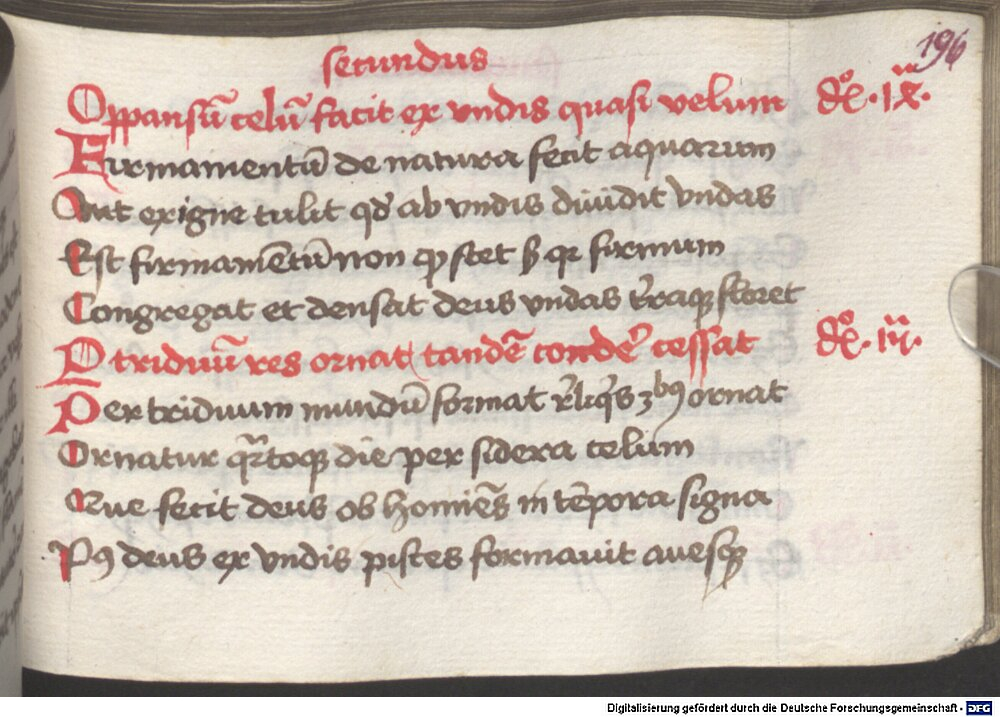 196
secundus
Oppansū celū facit ex vndis quasi velum dᵒ. ix.
Firmamentū de natura fecit aquarum
Aut exigne tulit qd ab vndis diuidit vndas
Est firmamētū non stet firmum
Congregat et densat deus vndas t'raqꝫ floret
P triduū res ornat tandē condē cessat dᵒ.
Per triduum mundū format ornat
Ornatur qͣrtoqꝫ die per sidera celum
Que fecit deus ob homiēs in tēpora signa
Pꝰ deus ex vndis pisces formauit auesqꝫ
Digitalisierung gefördert durch die Deutsche Forschungsgemeinschaft - DFG